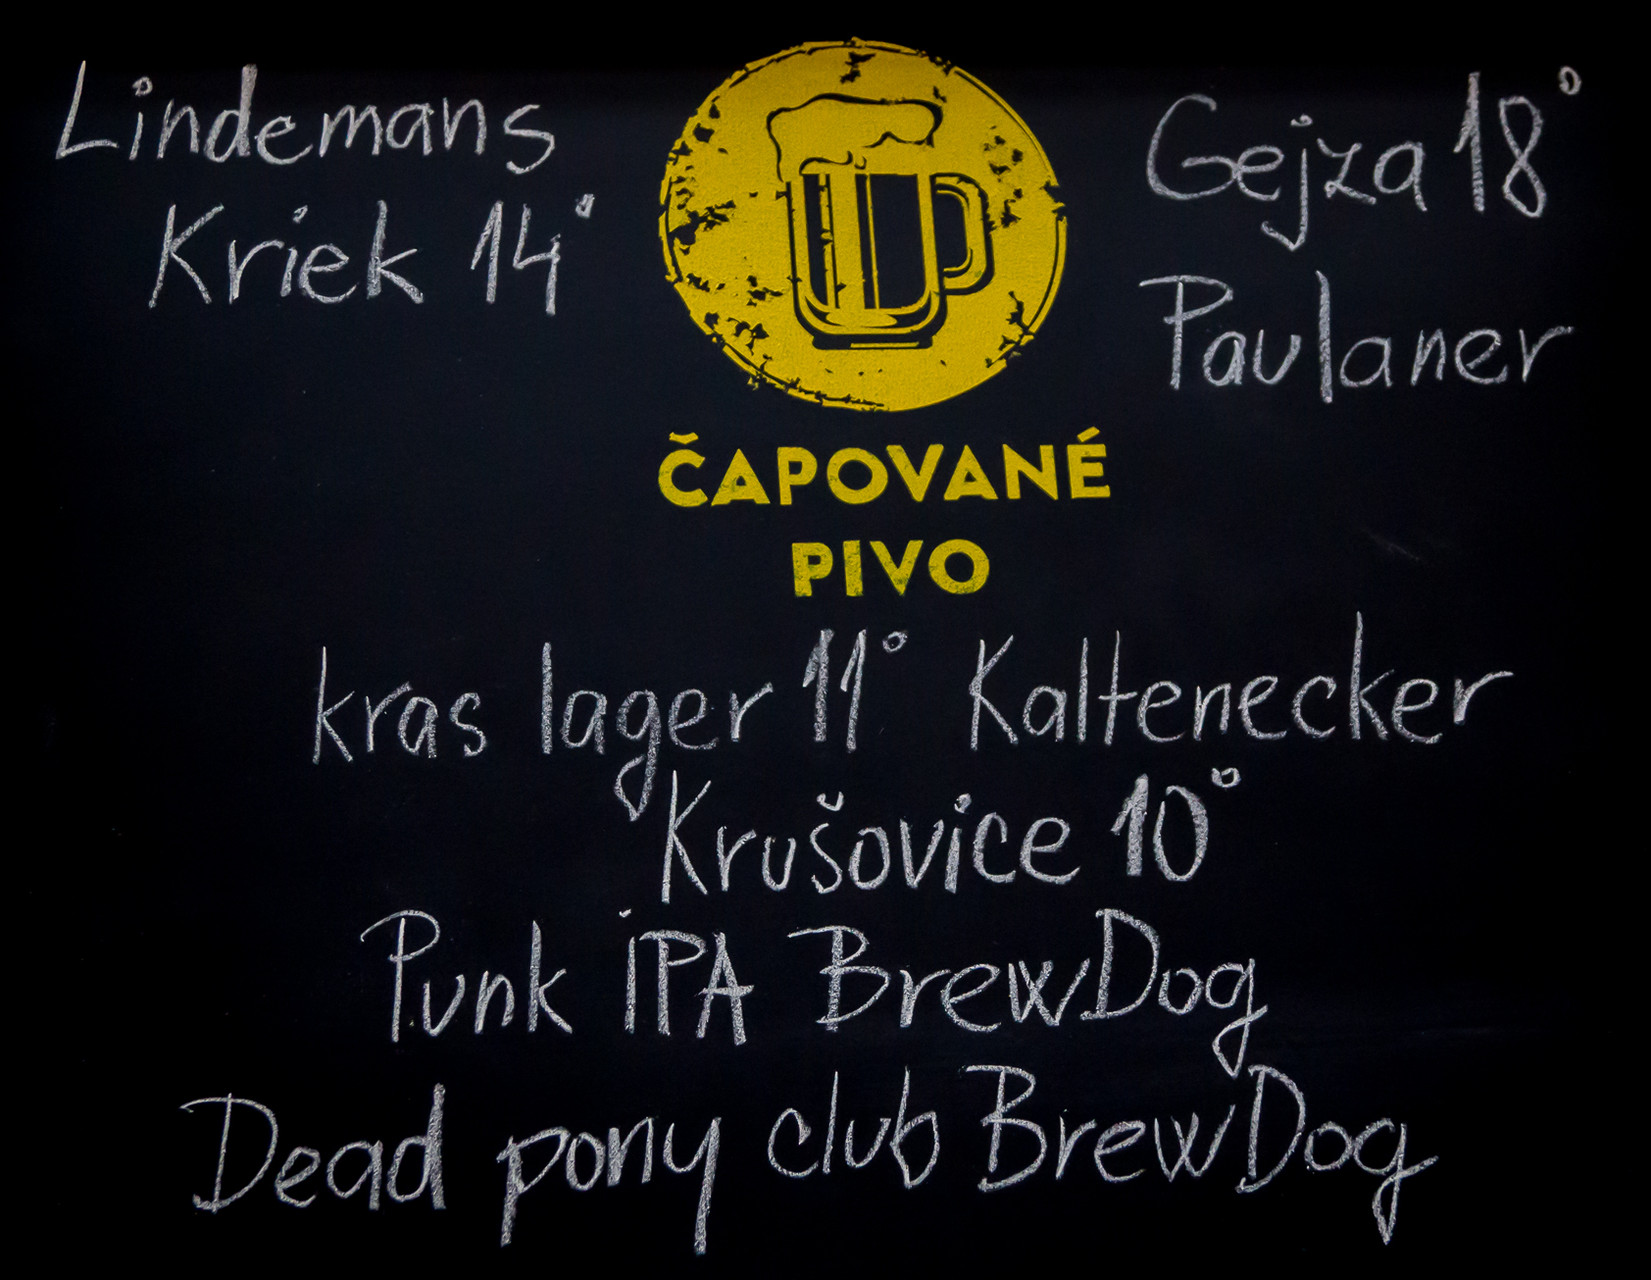 Lindemans
Kriek 14°
Gejza 18°
Paulaner
ČAPOVANÉ
PIVO
kras lager 11° Kaltenecker
Krušovice 10°
Punk IPA BrewDog
Dead pony club BrewDog